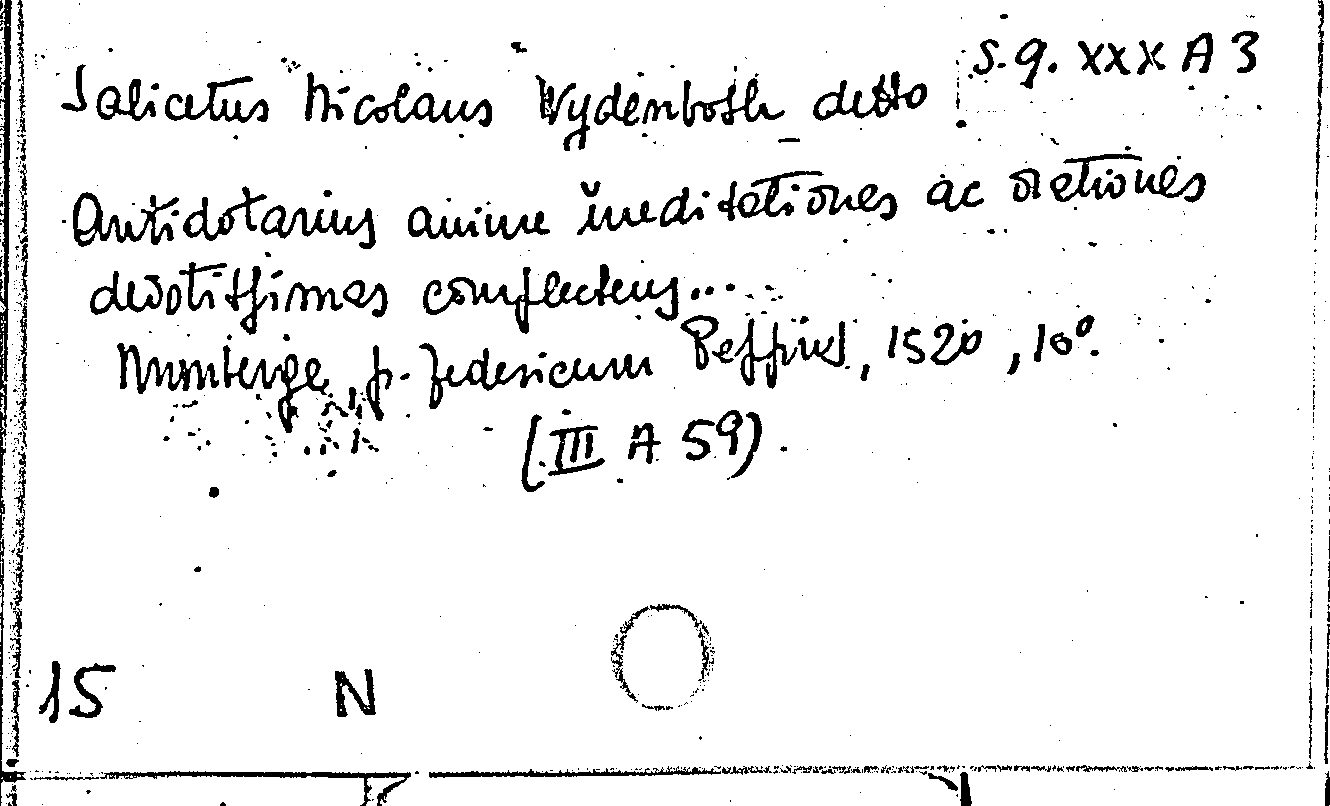 Salicetus Nicolaus Wydenbosh detto S.q. XXX A 3
Antidotarius anime meditationes ac orationes
devotissimas complectens...
Nurnberge, p. Federicum Peypus, 1520, 16°.
(III A 59).
15 N